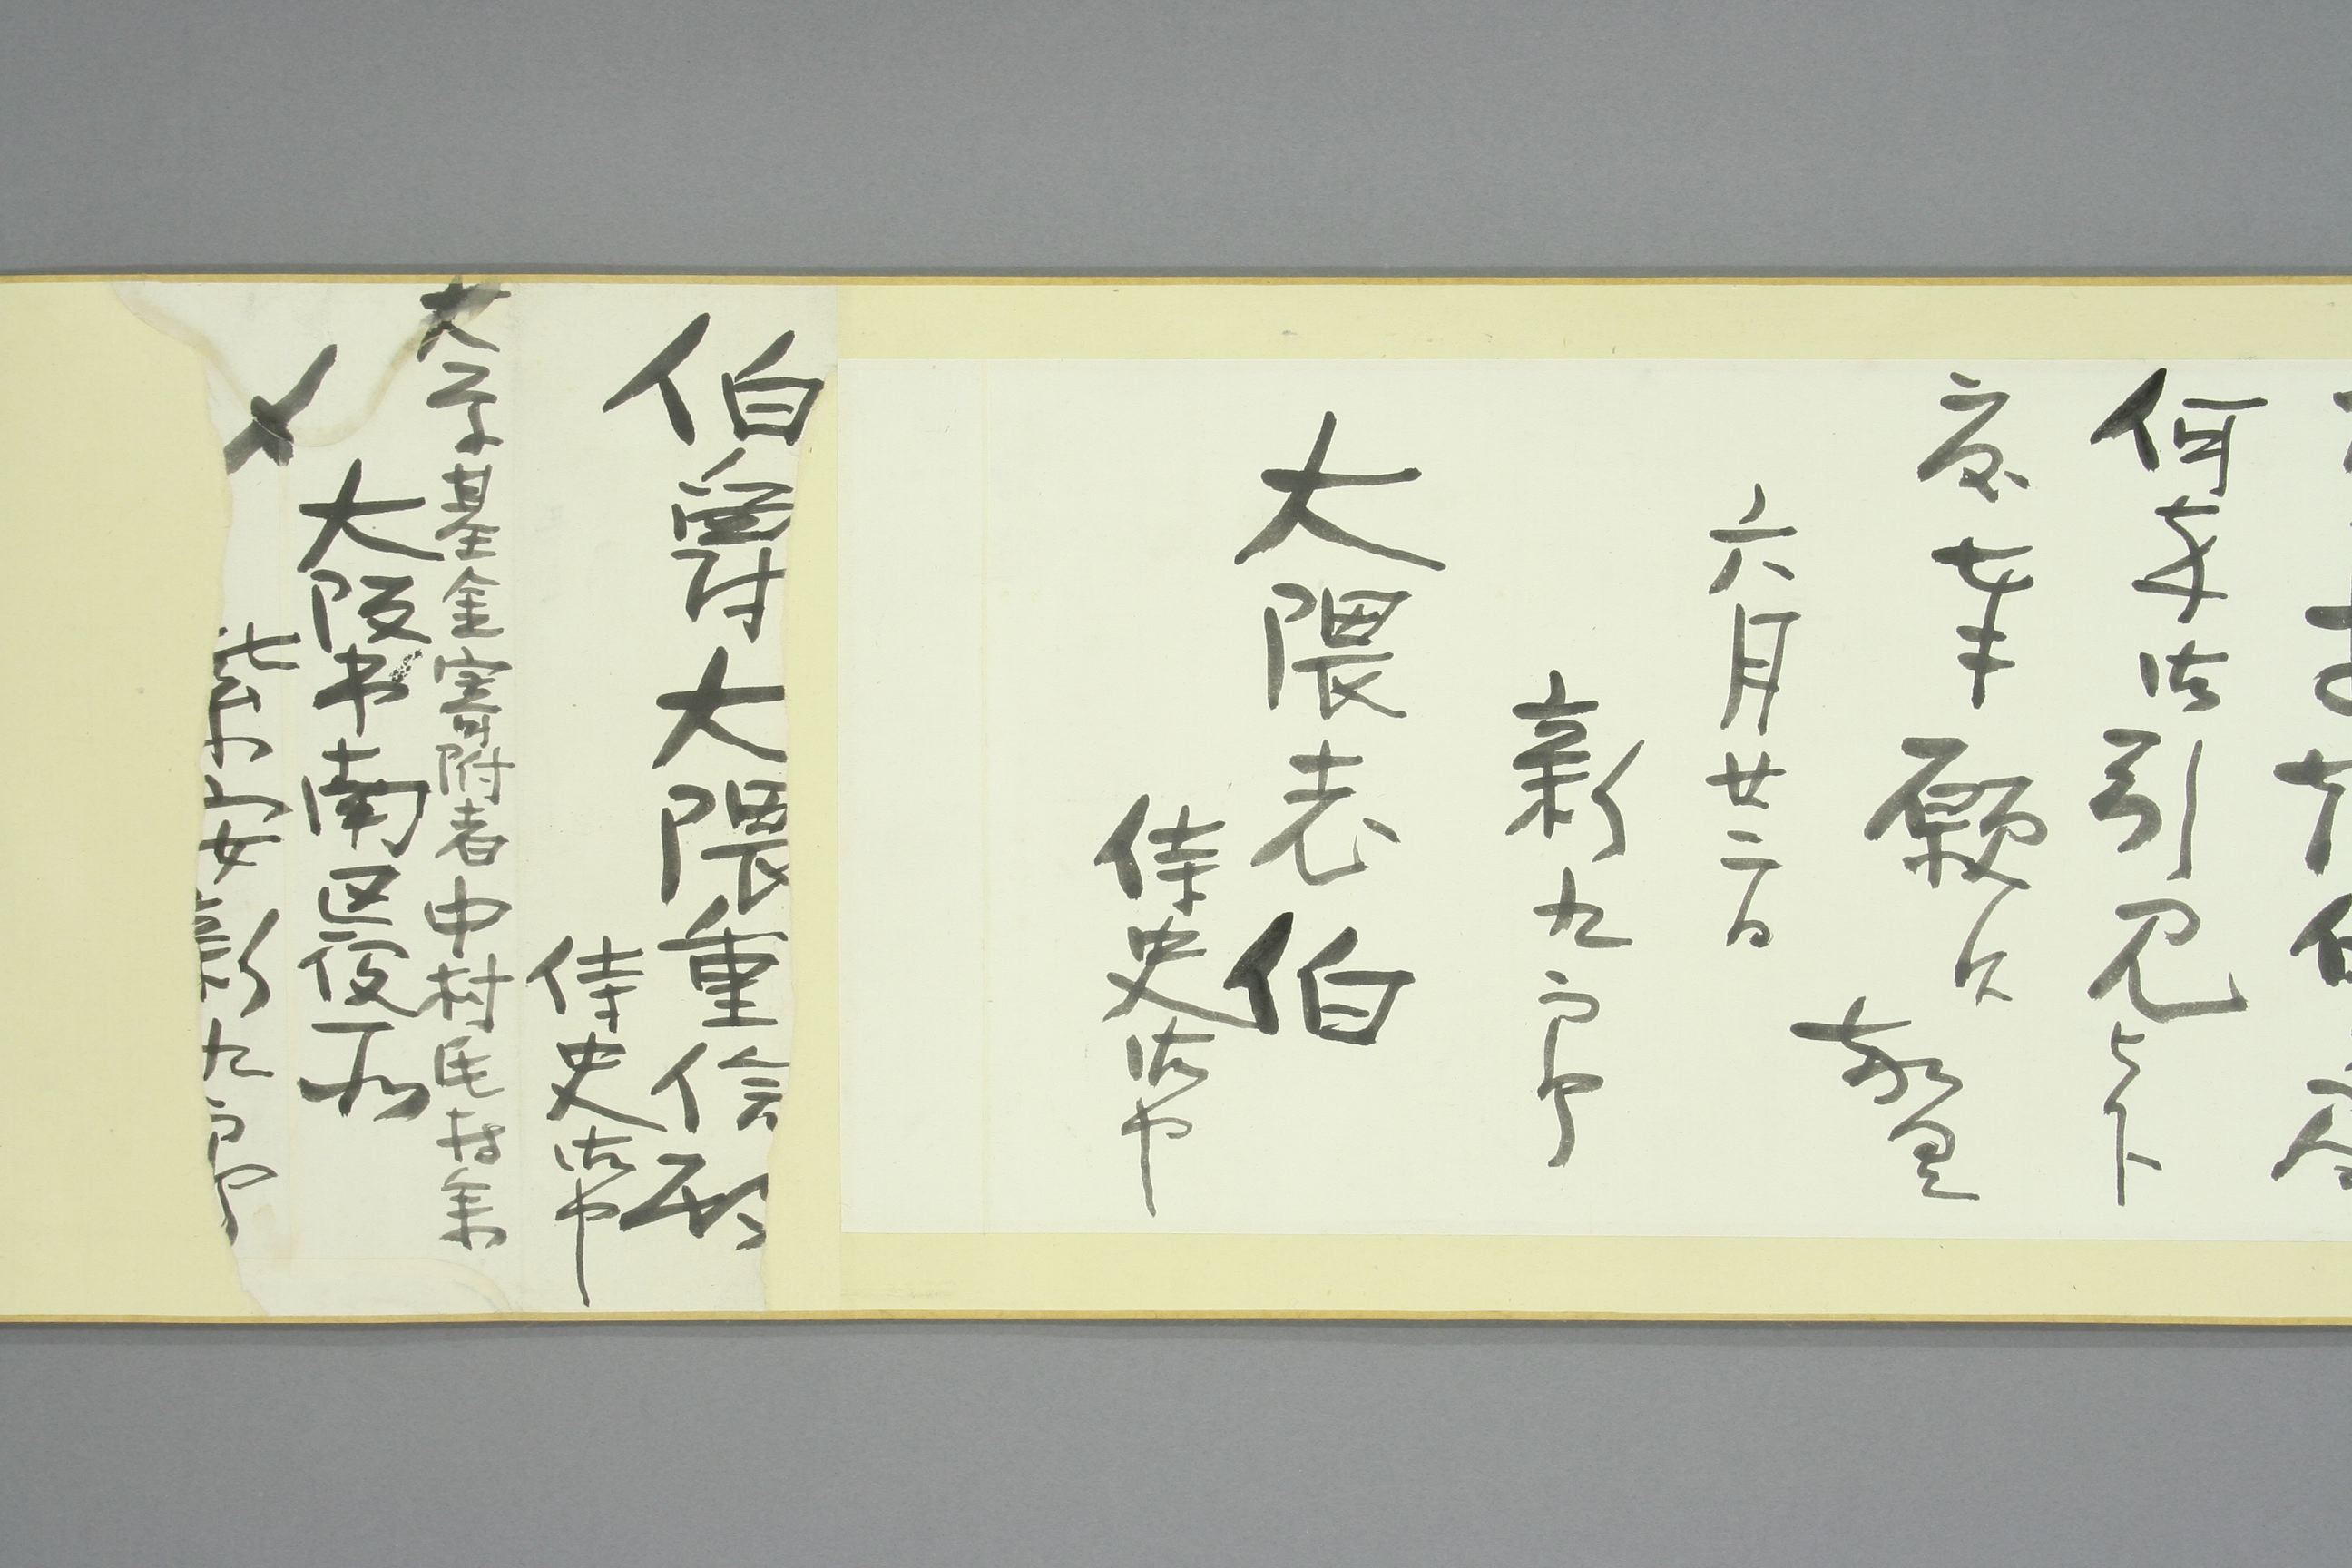 何卒御引見被下
度奉願候 敬具
六月廿二日
新九郎
大隈老伯
侍史御中
伯爵大隈重信殿
侍史御中
大学基金寄附者中村氏持参
大阪市南区役所
〆
紫安新九郎